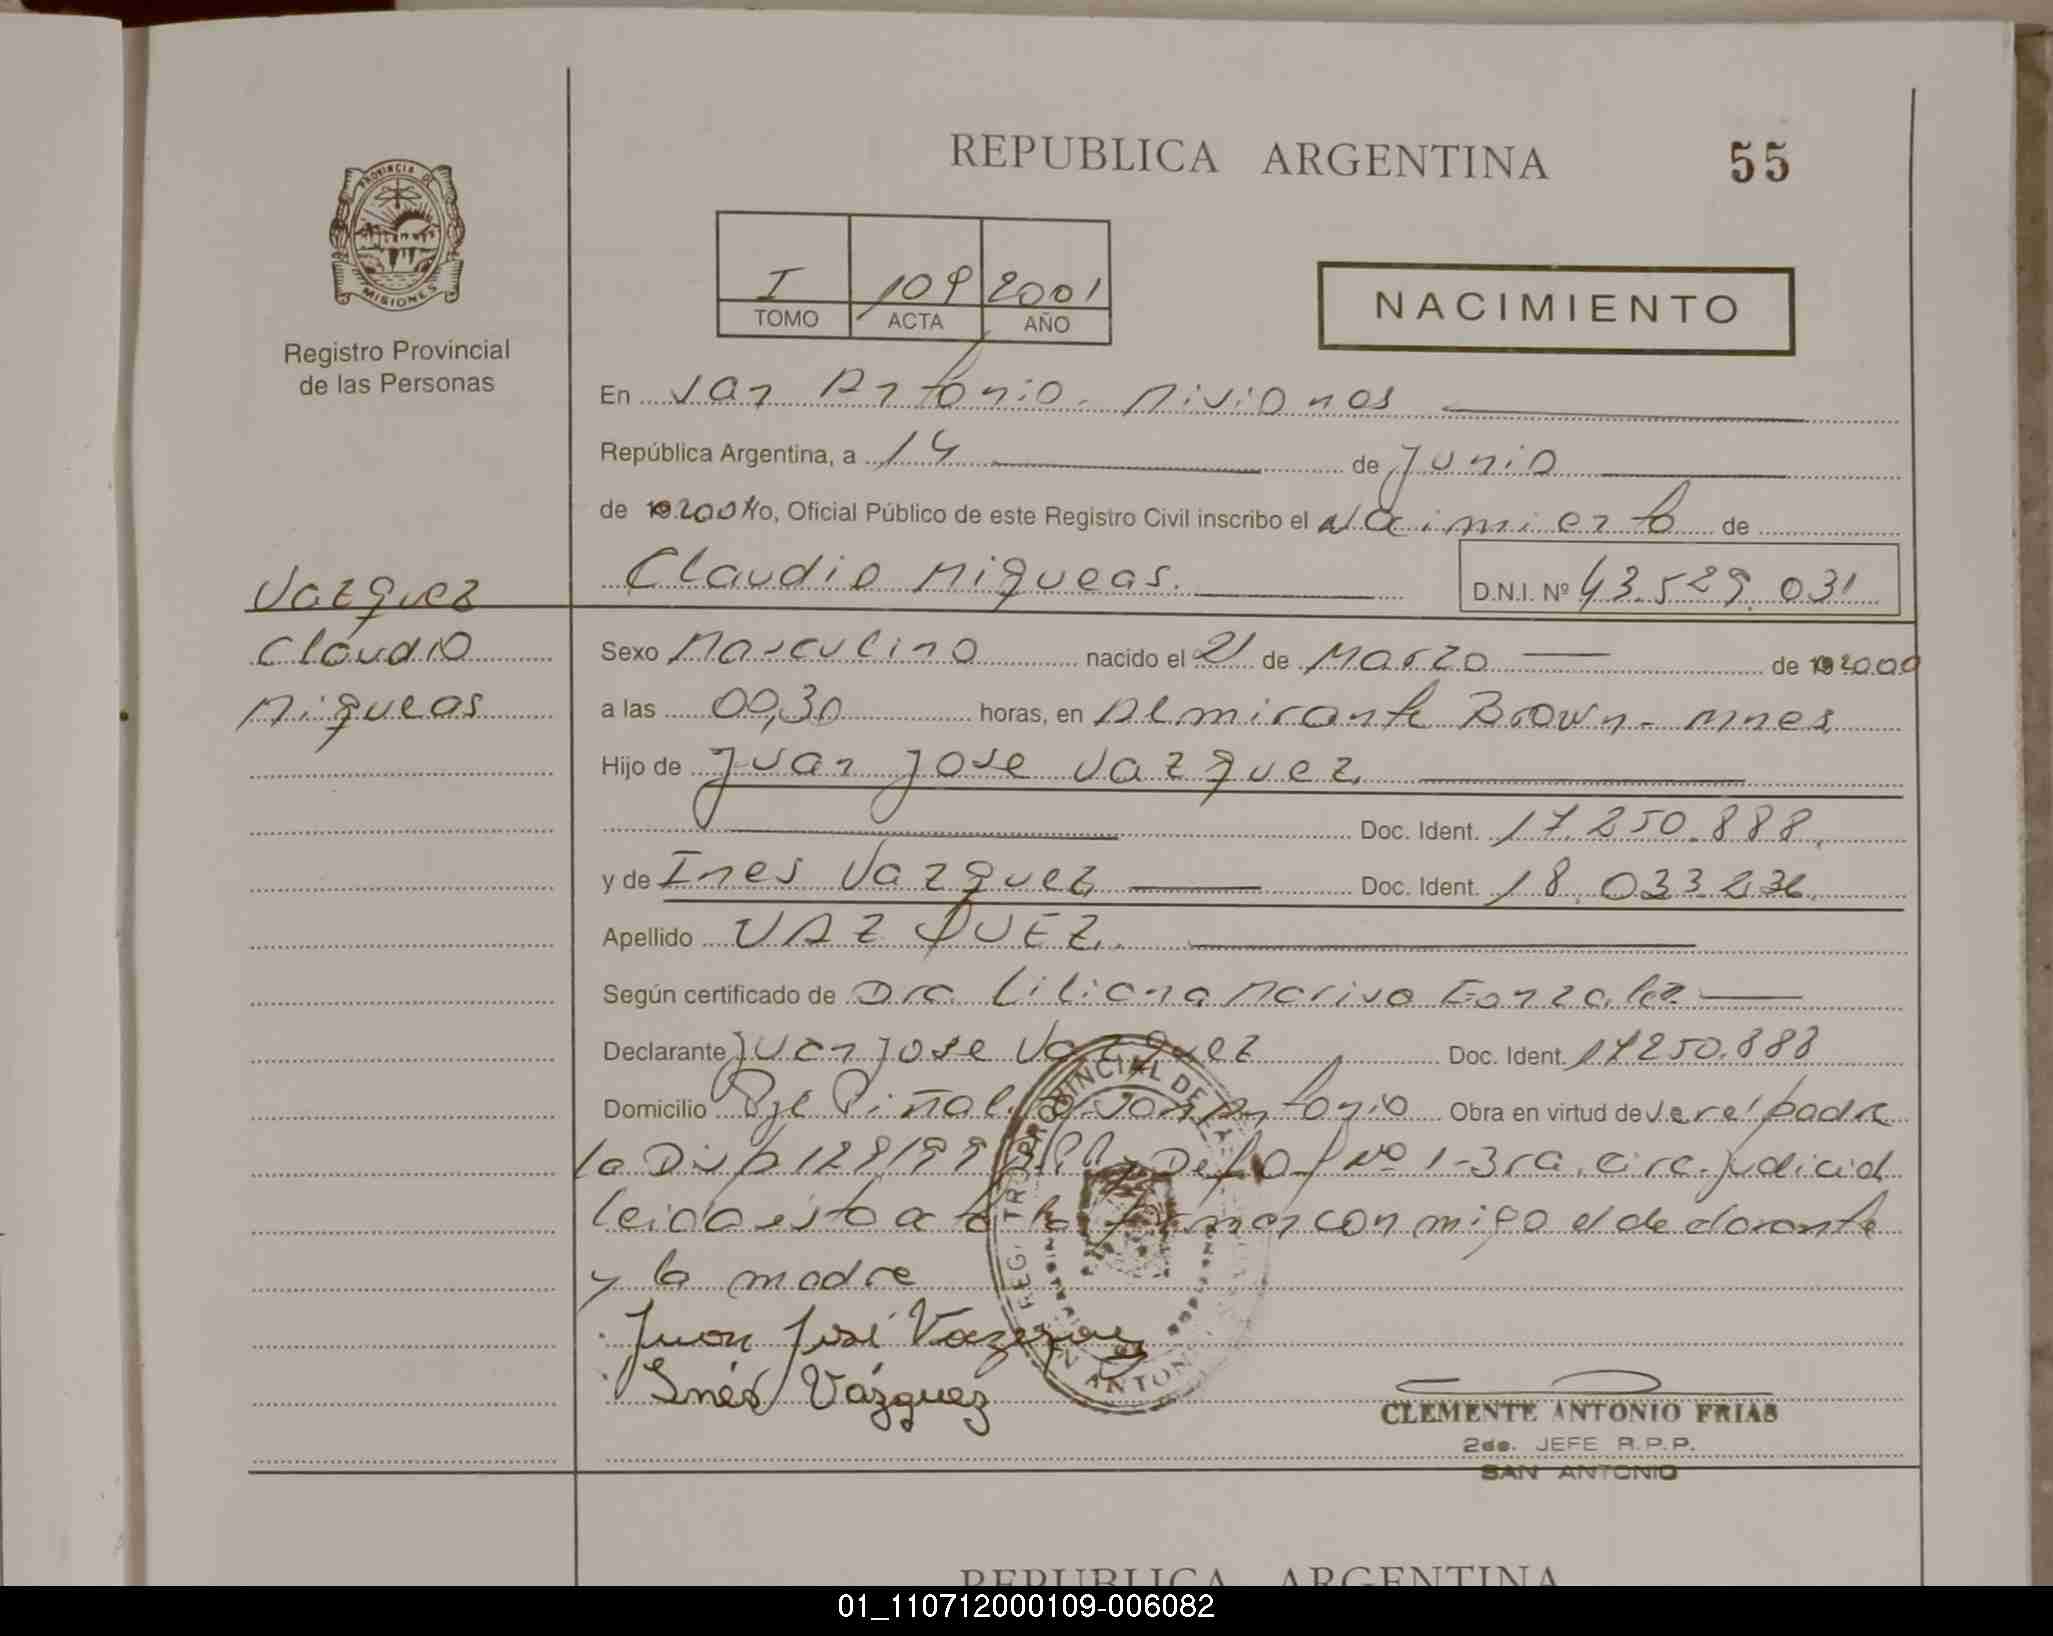 REPUBLICA ARGENTINA
55
PROVINCIA DE
MISIONES
Registro Provincial
de las Personas
I 109 2001
TOMO ACTA AÑO
NACIMIENTO
En San Antonio. Misiones
República Argentina, a 14 de Junio
de 2001 Yo, Oficial Público de este Registro Civil inscribo el Nacimiento de
Claudio Miqueas.
D.N.I. Nº 43.529.031
Vazquez
Claudio
Miqueas
Sexo Masculino nacido el 21 de Marzo de 2000
a las 00,30 horas, en Almirante Brown - Mnes
Hijo de Juan Jose Vazquez
Doc. Ident. 17.250.888
y de Ines Vazquez Doc. Ident. 18.033.236
Apellido VAZQUEZ
Según certificado de Dra. Liliana Marisa Gonzalez
Declarante Juan Jose Vazquez Doc. Ident. 17250.888
Domicilio Pje Piñal San Antonio Obra en virtud de ser el padre
la Disp 128/99 Nº 1-3ra. circ. judicial
leida esta acta la firman conmigo el declarante
y la madre
Juan José Vazquez
Inés Vázquez
CLEMENTE ANTONIO FRIAS
2do. JEFE R.P.P.
SAN ANTONIO
REPUBLICA ARGENTINA
01_110712000109-006082